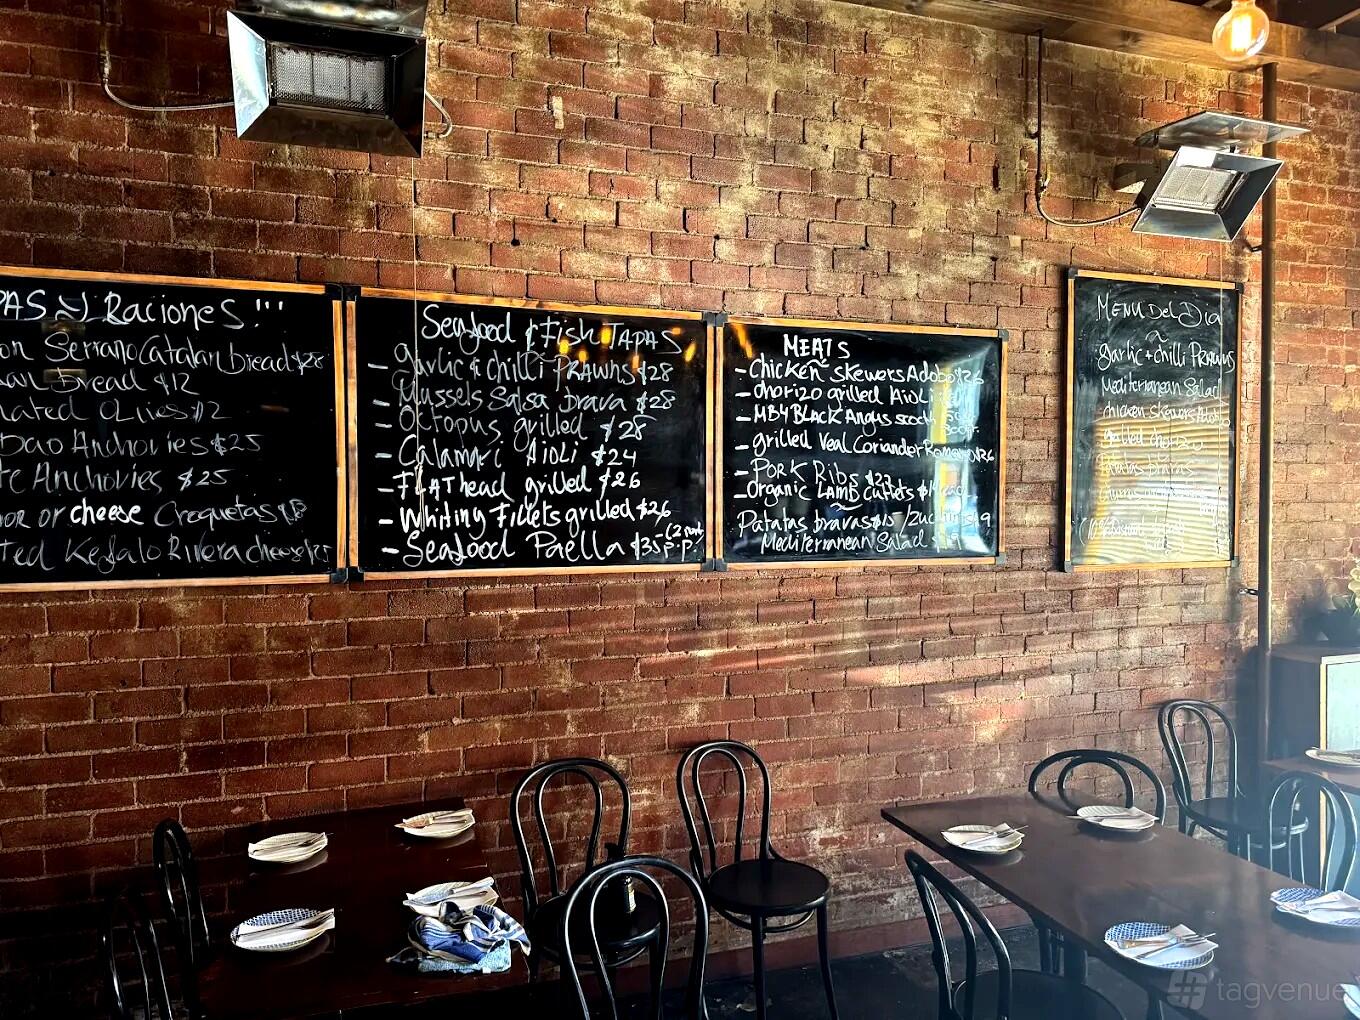 PAS ~ Raciones!!!
on Serrano Catalan bread $28
Bread $12
nated Olives $12
Dao Anchovies $25
te Anchovies $25
or or cheese Croquetas
ted Kefalo Rivera cheese $25
Seafood & Fish TAPAS
- garlic & chilli PRAWNS $28
- Mussels Salsa brava $28
- Octopus grilled $28
- Calamari Aioli $24
- FLAThead grilled $26
- Whiting Fillets grilled $26
- Seafood Paella $35 p.p. (2
MEATS
- chicken skewers Adobo $26
- chorizo grilled Aioli
- MB4 BLACK Angus scotch
- grilled Veal Coriander Romero $26
- Pork Ribs $27
- Organic LAMB Cutlets
Patatas bravas $15 /
Mediterranean Salad
MENU Del Dia
~
garlic + chilli PRAWNS
Mediterranean Salad
chicken skewers Adobo
grilled chorizo
Patatas bravas
Churros
# tagvenue